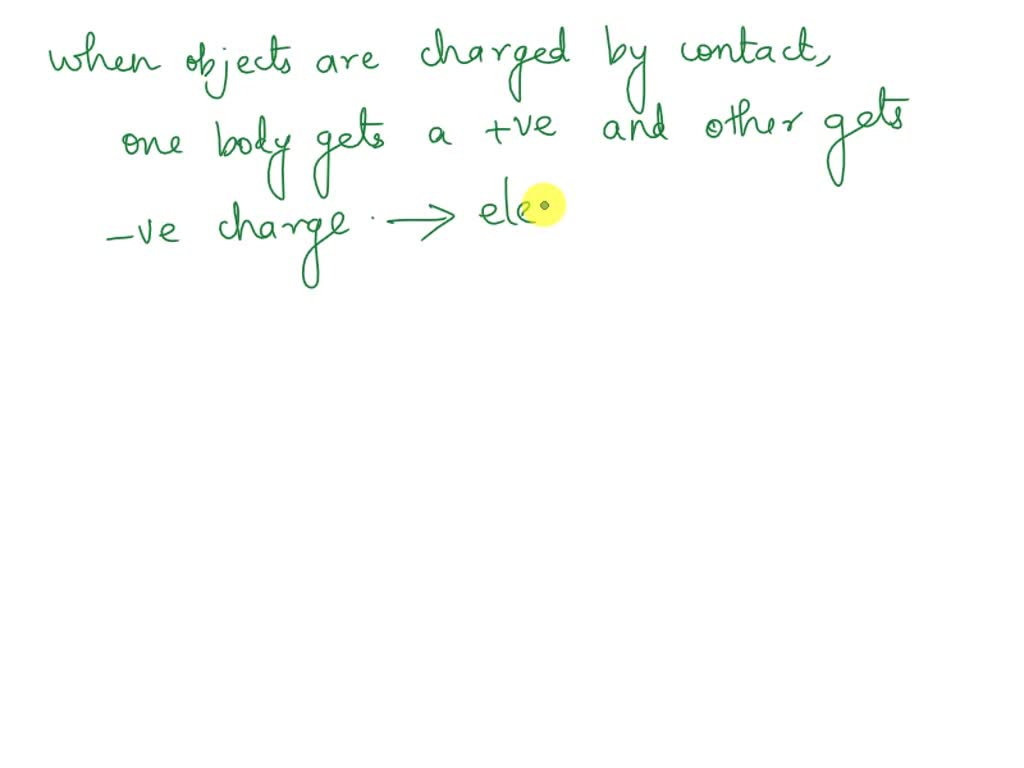 when objects are charged by contact,
one body gets a +ve and other gets
-ve charge. → ele